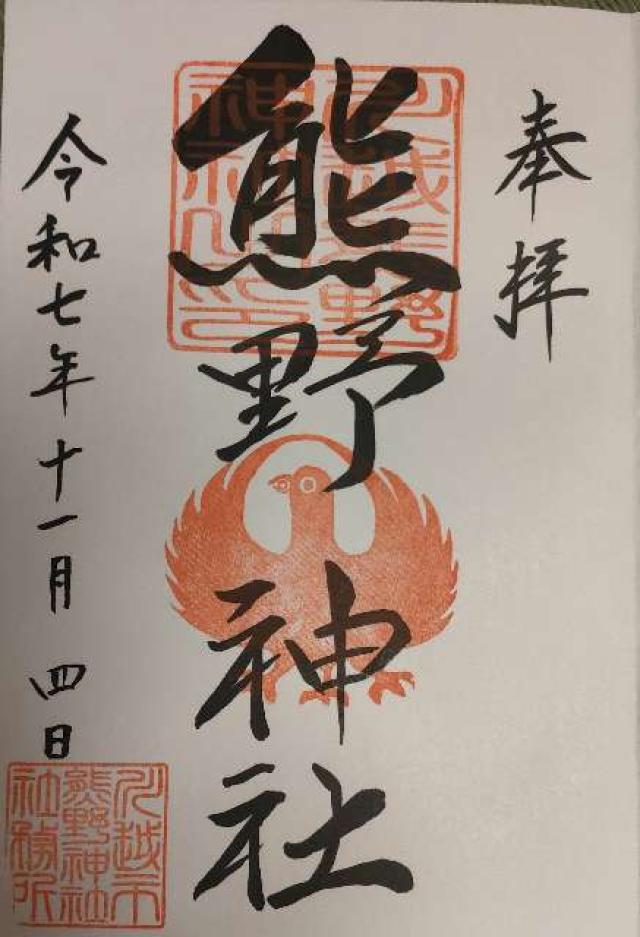 奉拝
熊野神社
川越熊野
神社之印
令和七年十一月四日
川越市
熊野神社
社務所